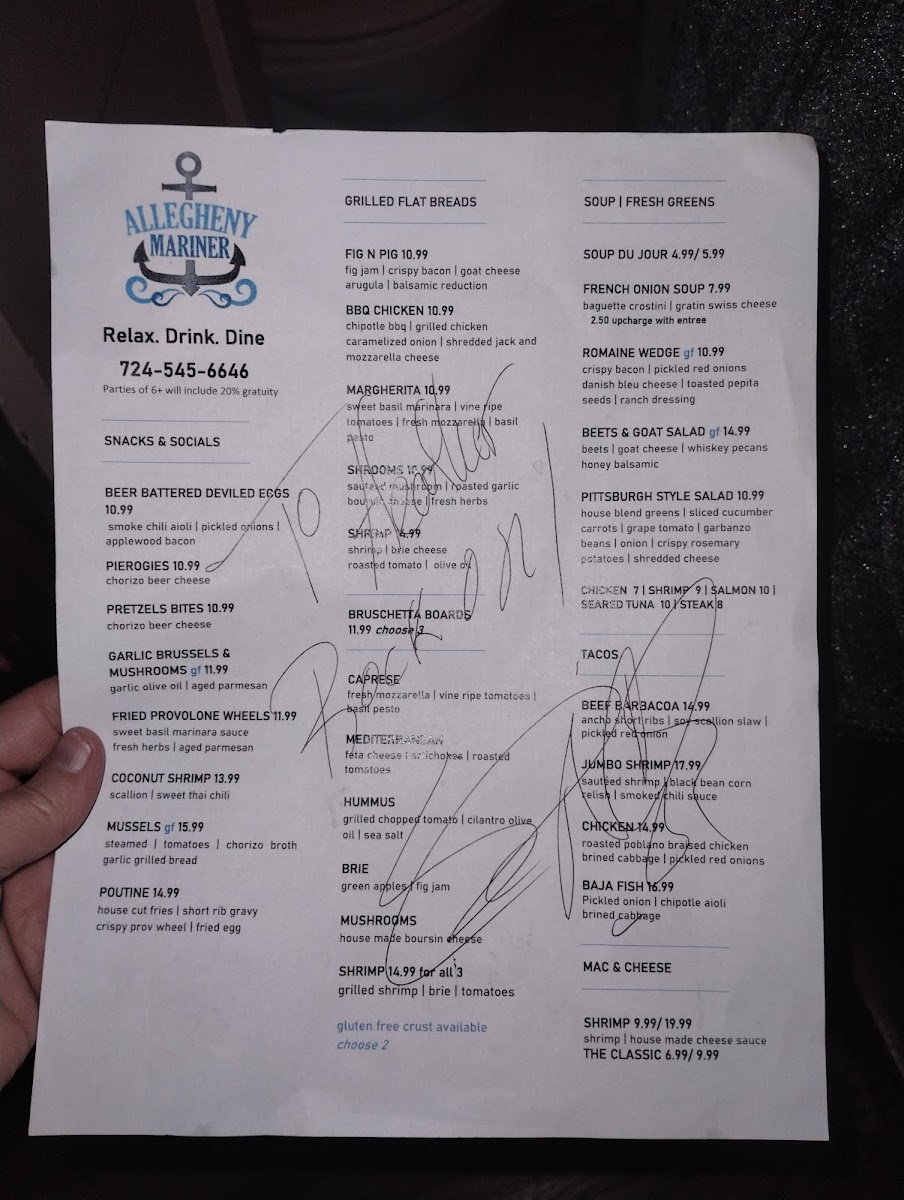 ALLEGHENY
MARINER
Relax. Drink. Dine
724-545-6646
Parties of 6+ will include 20% gratuity
SNACKS & SOCIALS
BEER BATTERED DEVILED EGGS
10.99
smoke chili aioli | pickled onions |
applewood bacon
PIEROGIES 10.99
chorizo beer cheese
PRETZELS BITES 10.99
chorizo beer cheese
GARLIC BRUSSELS &
MUSHROOMS gf 11.99
garlic olive oil | aged parmesan
FRIED PROVOLONE WHEELS 11.99
sweet basil marinara sauce
fresh herbs | aged parmesan
COCONUT SHRIMP 13.99
scallion | sweet thai chili
MUSSELS gf 15.99
steamed | tomatoes | chorizo broth
garlic grilled bread
POUTINE 14.99
house cut fries | short rib gravy
crispy prov wheel | fried egg
GRILLED FLAT BREADS
FIG N PIG 10.99
fig jam | crispy bacon | goat cheese
arugula | balsamic reduction
BBQ CHICKEN 10.99
chipotle bbq | grilled chicken
caramelized onion | shredded jack and
mozzarella cheese
MARGHERITA 10.99
sweet basil marinara | vine ripe
tomatoes | fresh mozzarella | basil
pesto
SHROOMS 10.99
sauteed mushroom | roasted garlic
boursin cheese | fresh herbs
SHRIMP 14.99
shrimp | brie cheese
roasted tomato | olive oil
BRUSCHETTA BOARDS
11.99 choose 3
CAPRESE
fresh mozzarella | vine ripe tomatoes |
basil pesto
MEDITERRANEAN
feta cheese | artichokes | roasted
tomatoes
HUMMUS
grilled chopped tomato | cilantro olive
oil | sea salt
BRIE
green apples | fig jam
MUSHROOMS
house made boursin cheese
SHRIMP 14.99 for all 3
grilled shrimp | brie | tomatoes
gluten free crust available
choose 2
SOUP | FRESH GREENS
SOUP DU JOUR 4.99/ 5.99
FRENCH ONION SOUP 7.99
baguette crostini | gratin swiss cheese
2.50 upcharge with entree
ROMAINE WEDGE gf 10.99
crispy bacon | pickled red onions
danish bleu cheese | toasted pepita
seeds | ranch dressing
BEETS & GOAT SALAD gf 14.99
beets | goat cheese | whiskey pecans
honey balsamic
PITTSBURGH STYLE SALAD 10.99
house blend greens | sliced cucumber
carrots | grape tomato | garbanzo
beans | onion | crispy rosemary
potatoes | shredded cheese
CHICKEN 7 | SHRIMP 9 | SALMON 10 |
SEARED TUNA 10 | STEAK 8
TACOS
BEEF BARBACOA 14.99
ancho short ribs | soy scallion slaw |
pickled red onion
JUMBO SHRIMP 17.99
sauteed shrimp | black bean corn
relish | smoked chili sauce
CHICKEN 14.99
roasted poblano braised chicken
brined cabbage | pickled red onions
BAJA FISH 16.99
Pickled onion | chipotle aioli
brined cabbage
MAC & CHEESE
SHRIMP 9.99/ 19.99
shrimp | house made cheese sauce
THE CLASSIC 6.99/ 9.99
To Heather
Rock on!